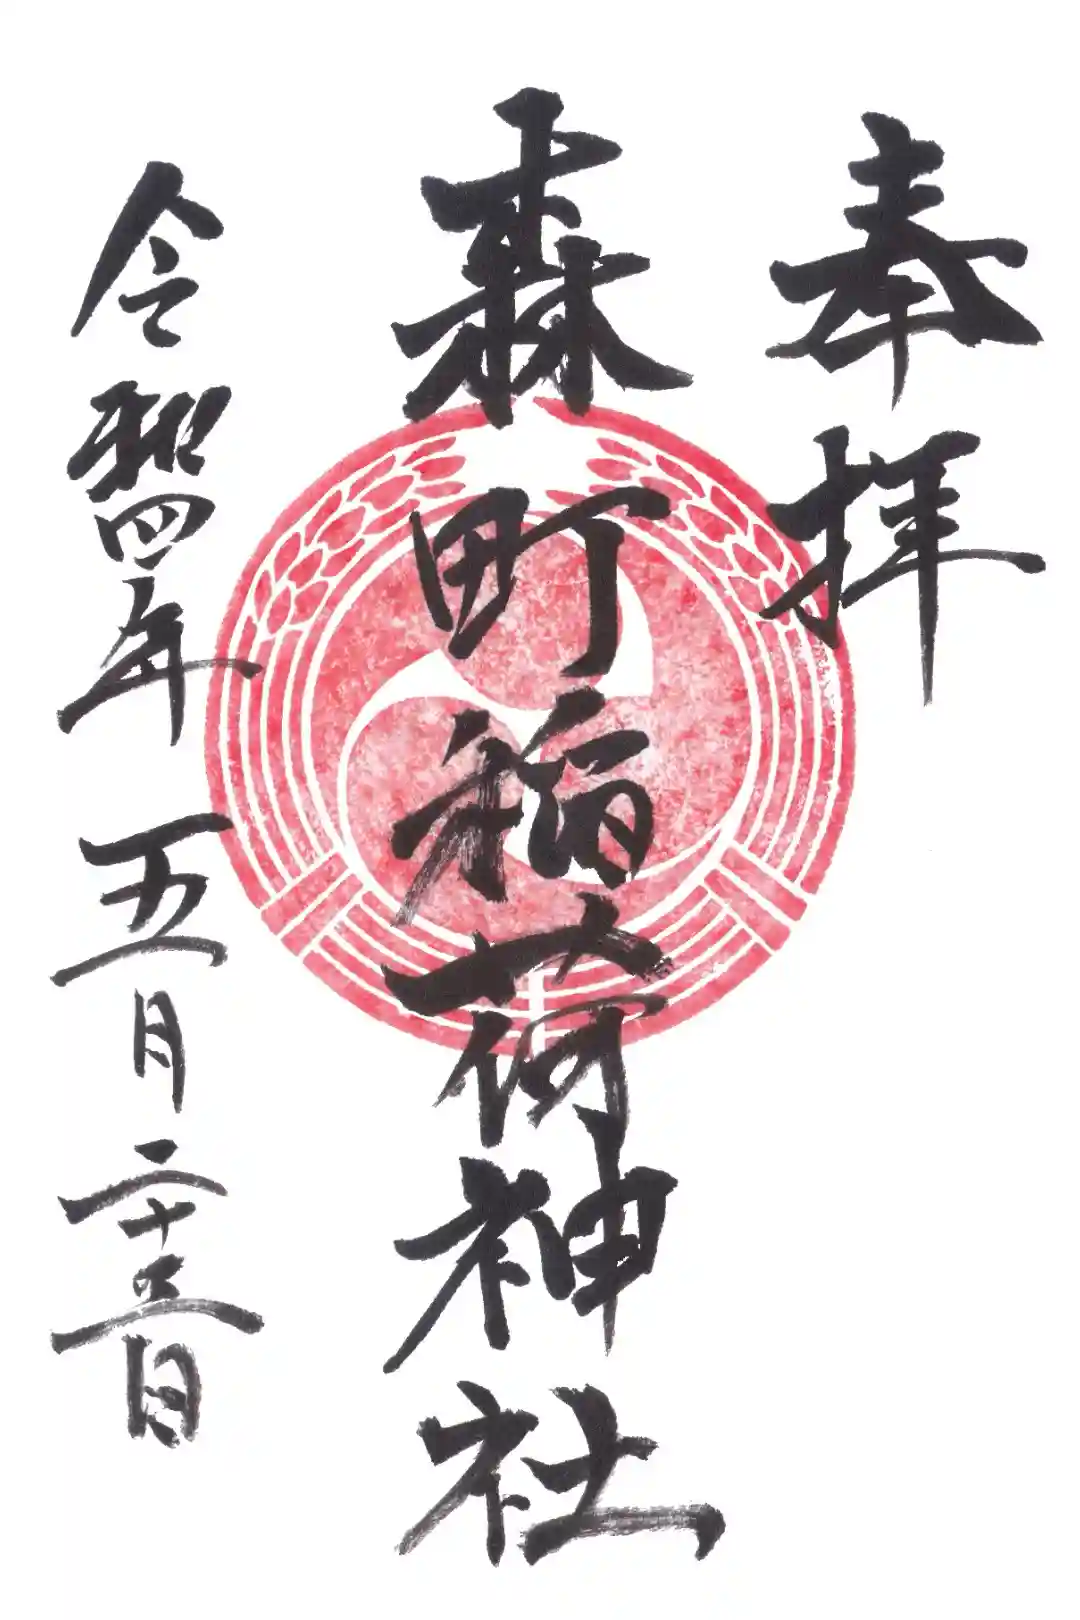 奉拝
森町稲荷神社
令和四年五月二十三日